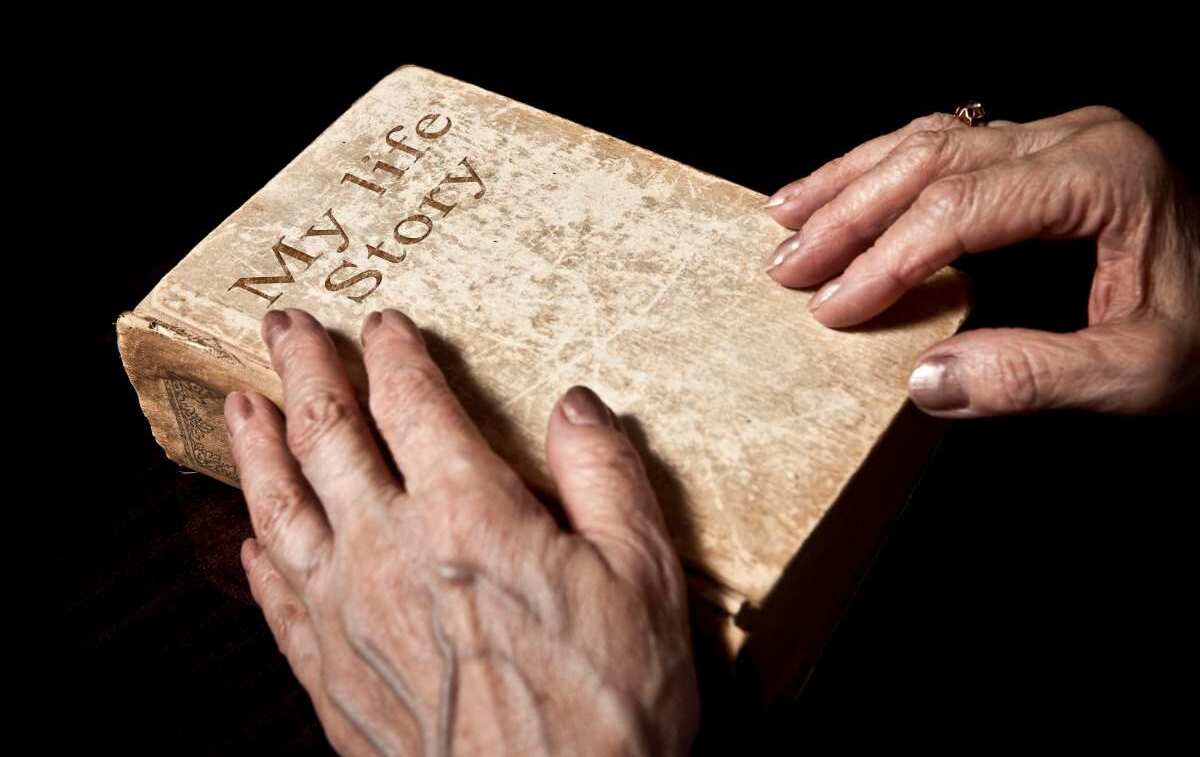 My life
Story